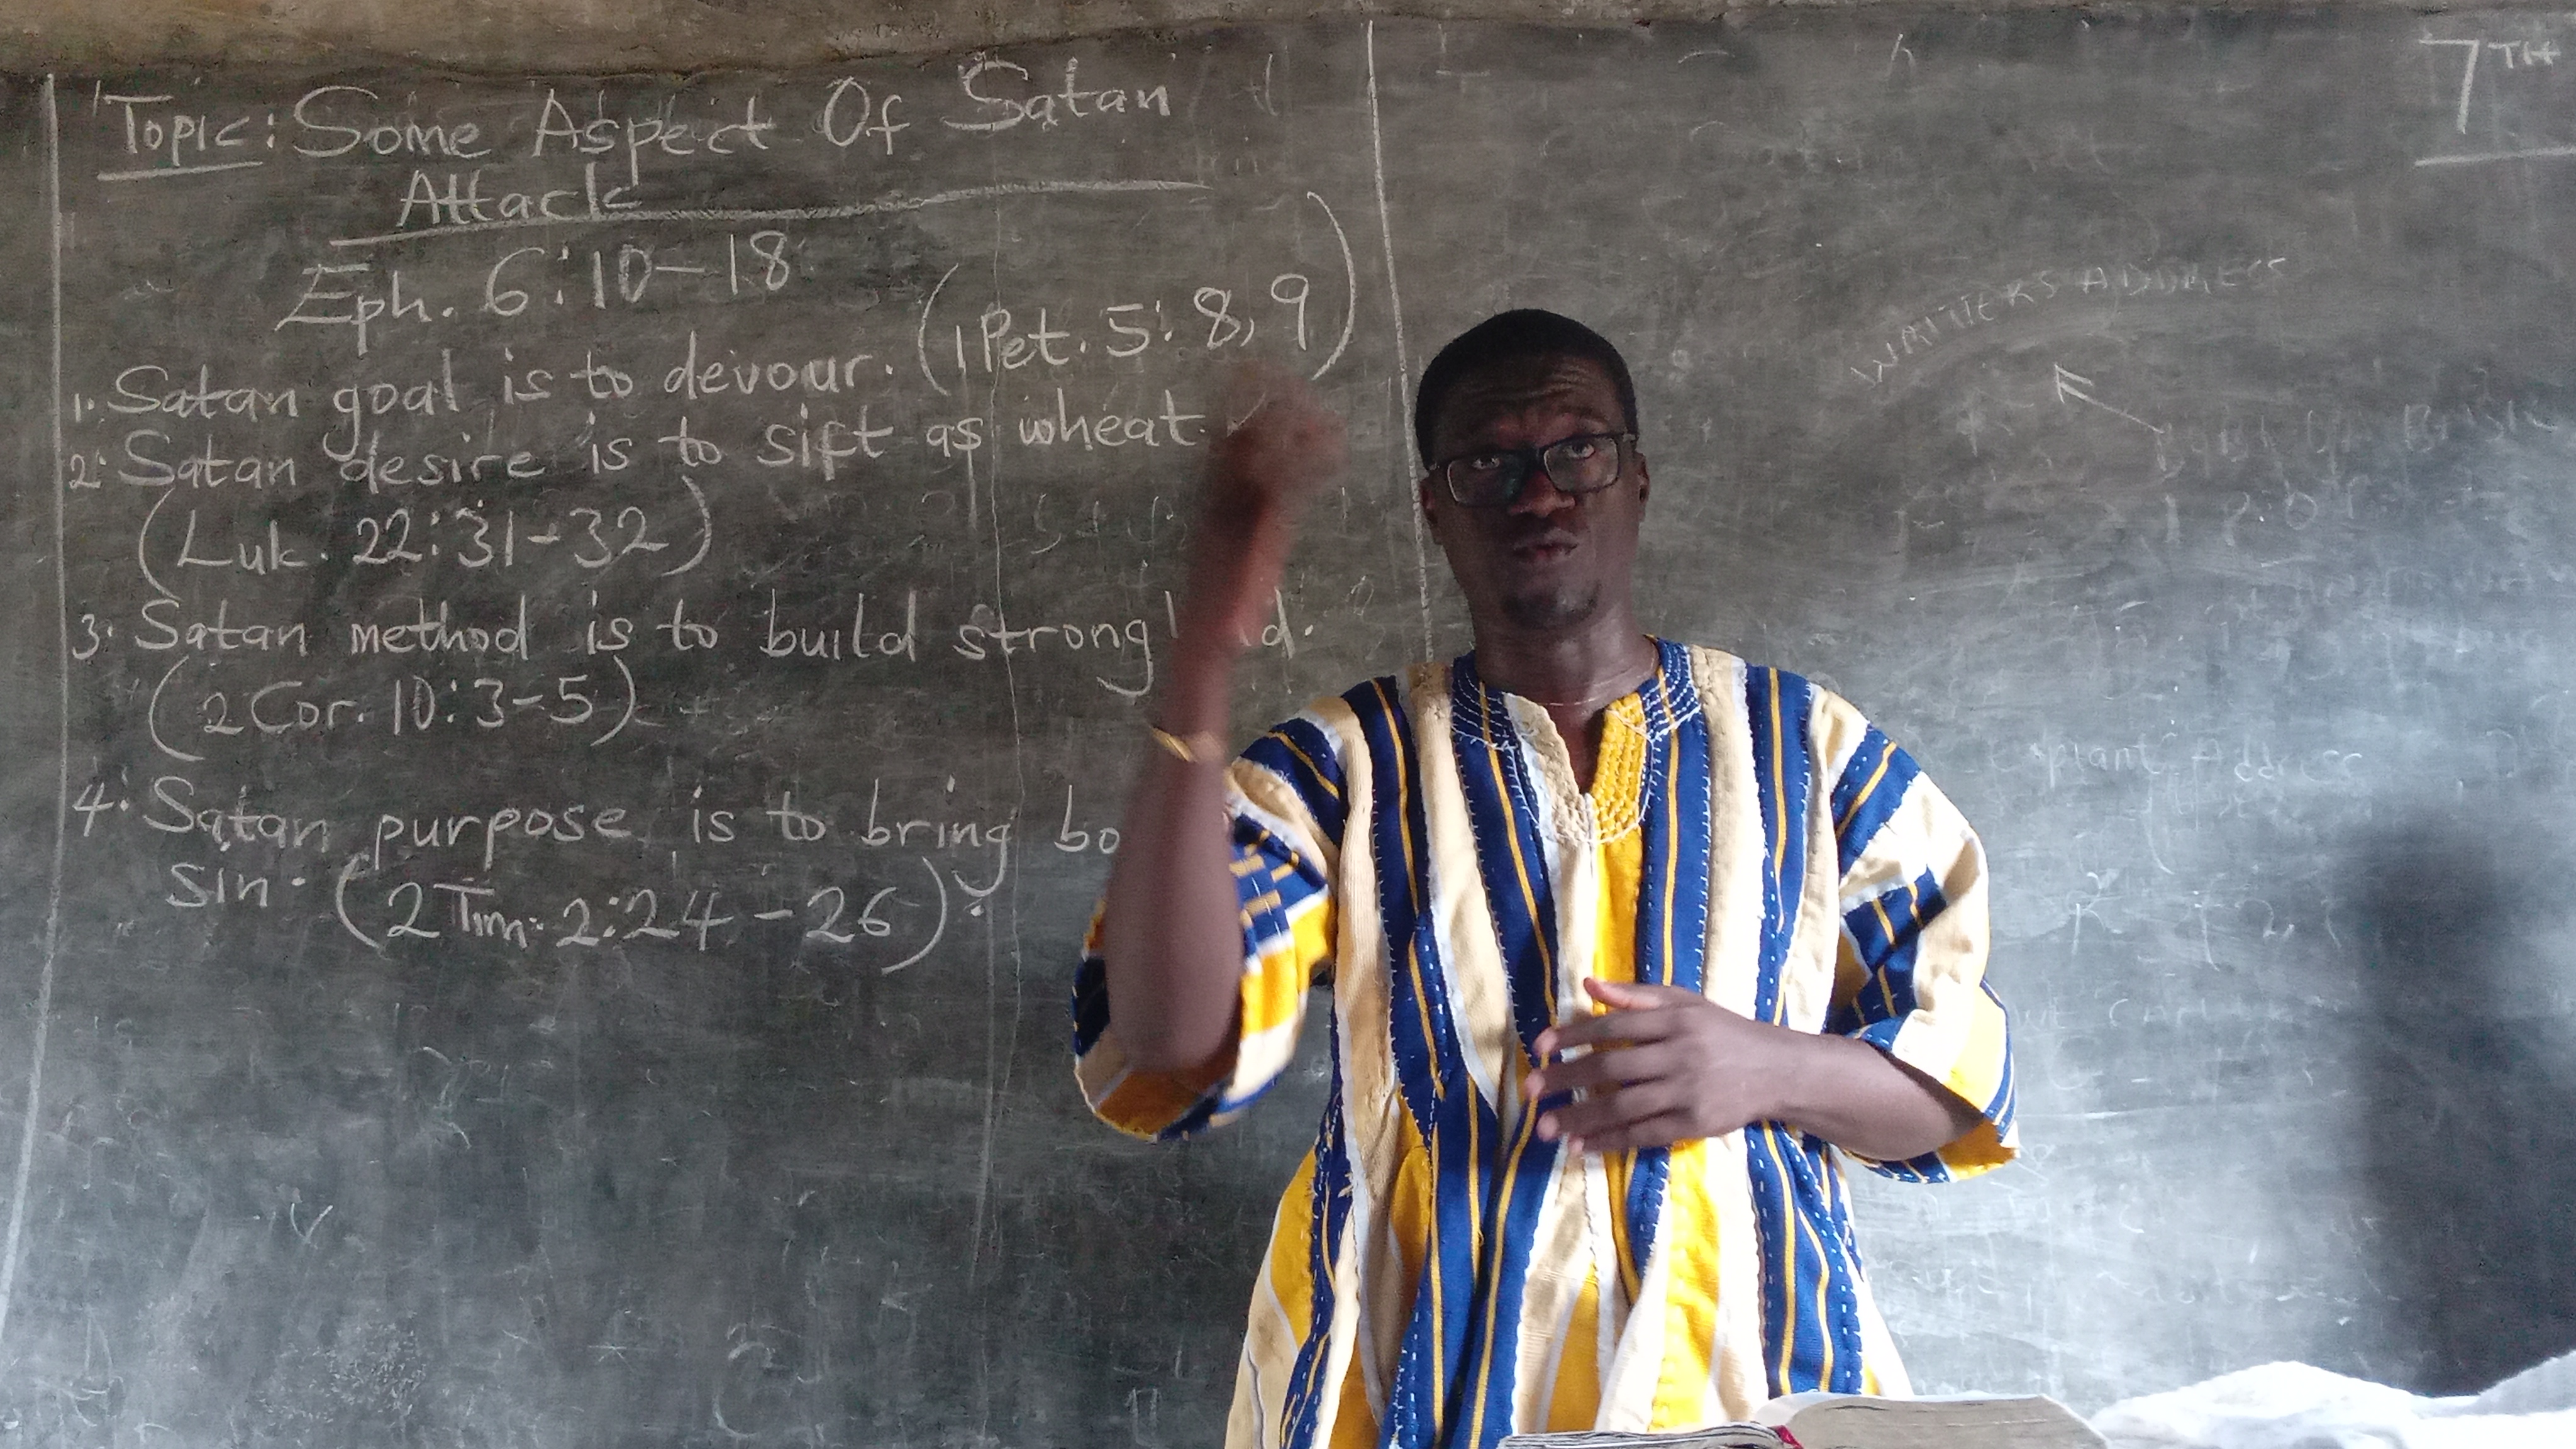 Topic: Some Aspect Of Satan
Attack
Eph. 6:10-18
1. Satan goal is to devour. (1Pet. 5:8,9)
2. Satan desire is to sift as wheat.
(Luk. 22:31-32)
3. Satan method is to build strong
(2Cor. 10:3-5)
4. Satan purpose is to bring
Sin. (2Tim. 2:24-26)
7TH
Address